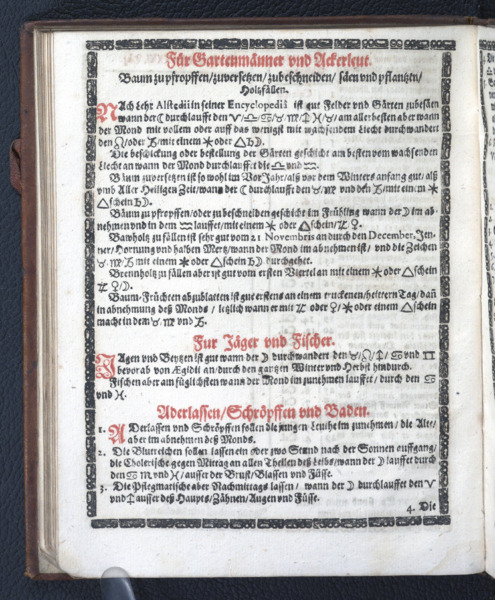 Für Gartenmänner vnd Ackerleut.
Baum zu pfropffen/zuversetzen/zubeschneiden/ säen vnd pflantzen/
Holtzfällen.
NAch Lehr Alstedii in seiner Encyclopediâ ist gut Felder vnd Gärten zubesäen
wann der ☾ durchlaufft den ♈/♎/♋/♉/♍/♐/♓/♉/ am allerbesten aber wann
der Mond mit vollem oder auff das wenigst mit wachsendem Liecht durchwandert
den ♌/oder ♑/mit einem ⚹ oder △♄☽.
Die beschickung oder bestellung der Gärten geschicht am besten vom wachsenden
Liecht an wann der Mond durchlaufft die ♎ vnd ♒.
Bäum zuversetzen ist so wohl im VorJahr/alß vor dem Winters anfang gut/ alß
vmb Aller Heiligen Zeit/wann der ☾ durchlaufft den ♉/♍ vnd den ♑/mit einem ⚹
△schein ♄☽.
Bäum zu pfropffen/oder zu beschneiden geschicht im Frühling wann der ☽ im ab-
nehmen vnd in dem ♒ laufft/ mit einem ⚹ oder △schein/♃ ♀.
Bawholtz zu fällen ist sehr gut vom 21 Novembris an durch den December, Jen-
ner/Hornung vnd halben Mertz/wann der Mond im abnehmen ist/ vnd die Zeichen
♉/♍/♑ mit einem ⚹ oder △schein ♄☽ durchgehet.
Brennholtz zu fällen aber ist gut vom ersten Viertel an mit einem ⚹ oder △schein
♃ ♀/☽.
Baum-Früchten abzublatten ist gut erstens an einem truckenen/heittern Tag/ dañ
in abnehmung deß Monds / letzlich wann er mit ♃ oder ♀/⚹ oder einem △schein
macht in dem ♉/♍ vnd ♑.
Für Jäger vnd Fischer.
JAgen vnd Beytzen ist gut wann der ☽ durchwandert den ♉/♌/♐/♋ vnd ♊
bevorab von Ægidii an/durch den gantzen Winter vnd Herbst hindurch.
Fischen aber am füglichsten wann der Mond im zunehmen lauffet/ durch den ♋
vnd ♓.
Aderlassen/Schröpffen vnd Baden.
1. ADerlassen vnd Schröpffen sollen die jungen Leuthe im zunehmen / die Alte/
aber im abnehmen deß Monds.
2. Die Blutreichen sollen lassen ein oder zwo Stund nach der Sonnen auffgang/
die Cholerische gegen Mittag an allen Theilen deß Leibs/wann der ☽ lauffet durch
den ♋ ♏ vnd ♓/ ausser der Brust/Blassen vnd Füsse.
3. Die Pflegmatische aber Nachmittags lassen / wann der ☽ durchlauffet den ♈
vnd ♐ ausser des Haupts/Zähnen/Augen vnd Füsse.
4. Die